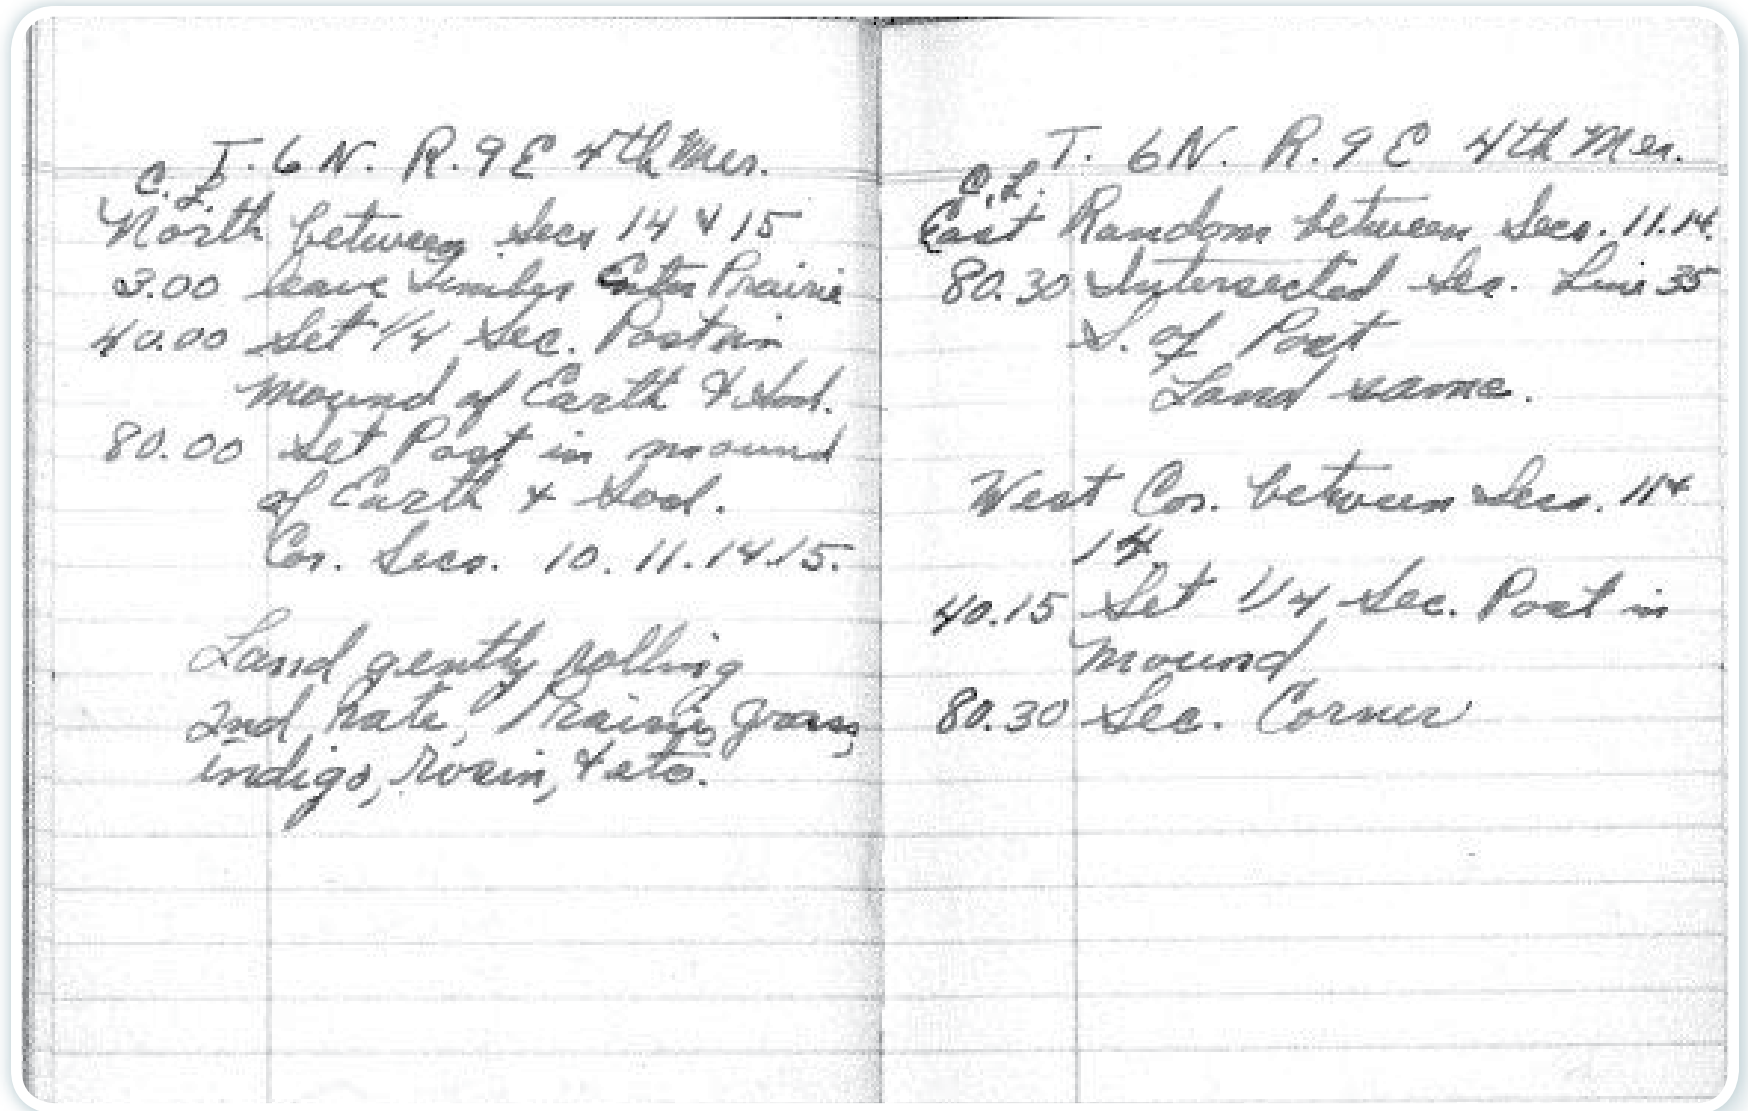 T. 6 N. R. 9 E 4th Mer.
C. L.
North between Secs 14 & 15
3.00 leave Timber Enter Prairie
40.00 Set 1/4 Sec. Post in
Mound of Earth & Sod.
80.00 Set Post in mound
of Earth & Sod.
Cor. Secs. 10. 11. 14. 15.
Land gently rolling
2nd rate, Prairie grass,
indigo, rosin, & etc.
T. 6 N. R. 9 E 4th Mer.
C. L.
East Random between Secs. 11. 14.
80.30 Intersected Sec. Line 35
S. of Post
Land same.
West Cor. between Secs. 11 &
14
40.15 Set 1/4 Sec. Post in
Mound
80.30 Sec. Corner